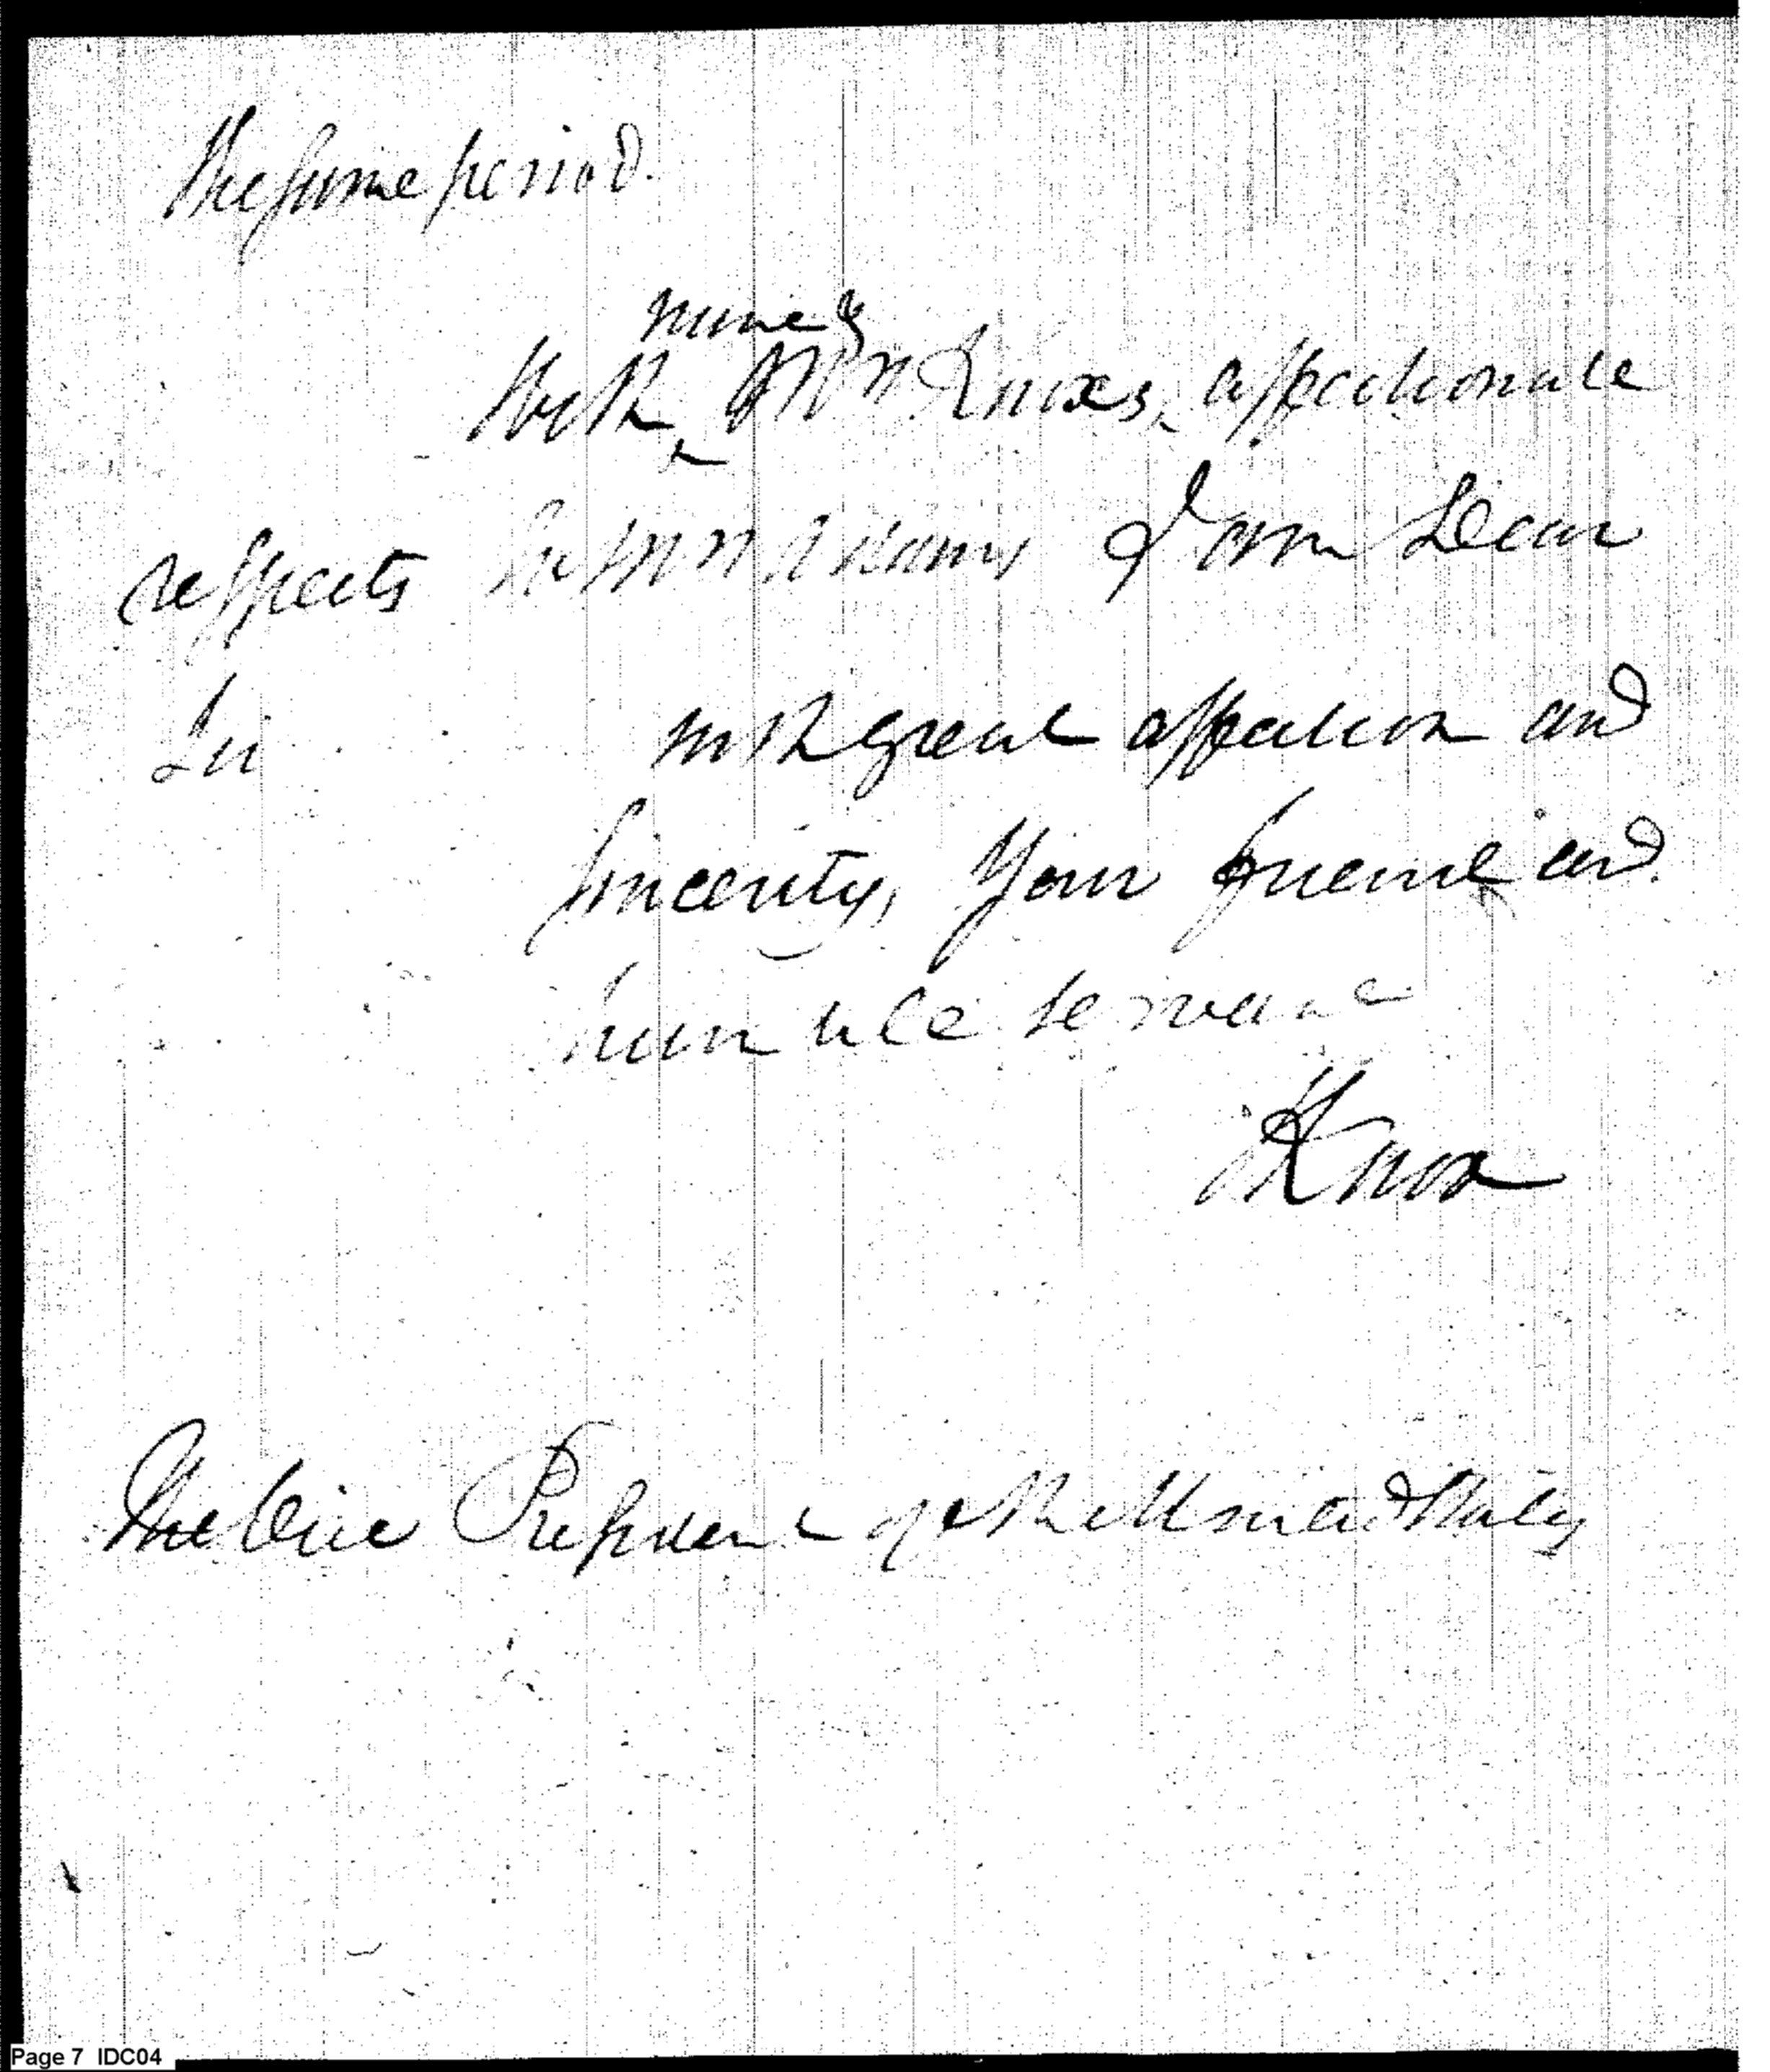 the same period.
mine &
With Mrs Knoxes, affectionate
respects to Mrs Adams I am Dear
Sir
with great affection and
sincerity, Your friend and
humble servant
HKnox
The Vice President of the United States
Page 7 IDC04